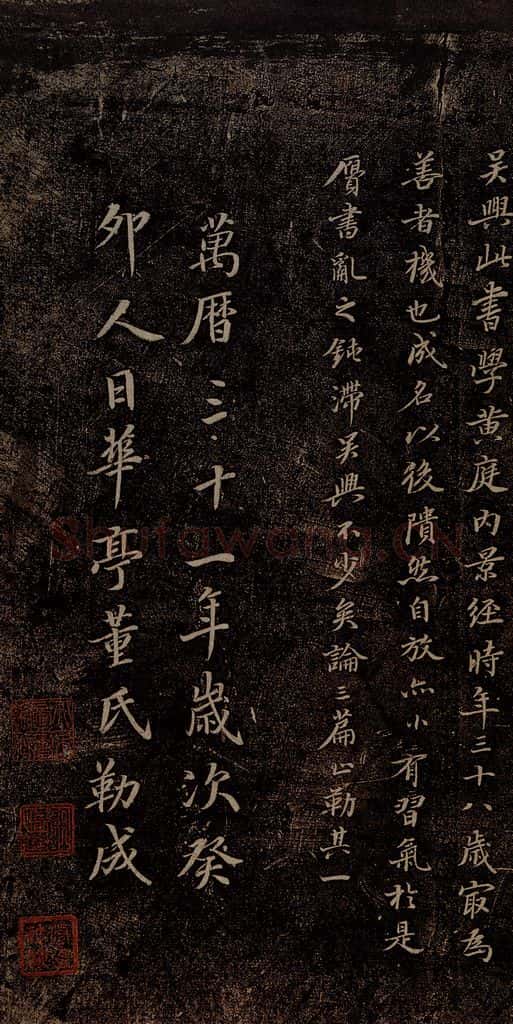 吴興此書學黄庭内景經時年三十八歲㝡為
善者機也成名以後隤然自放亦小有習氣於是
贋書亂之鈍滯吴興不少矣論三篇止勒其一
萬曆三十一年歲次癸
卯人日華亭董氏勒成
Shutawang.CN